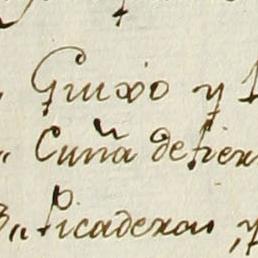 Guixo y
Cuña de fierr
Picaderos, y